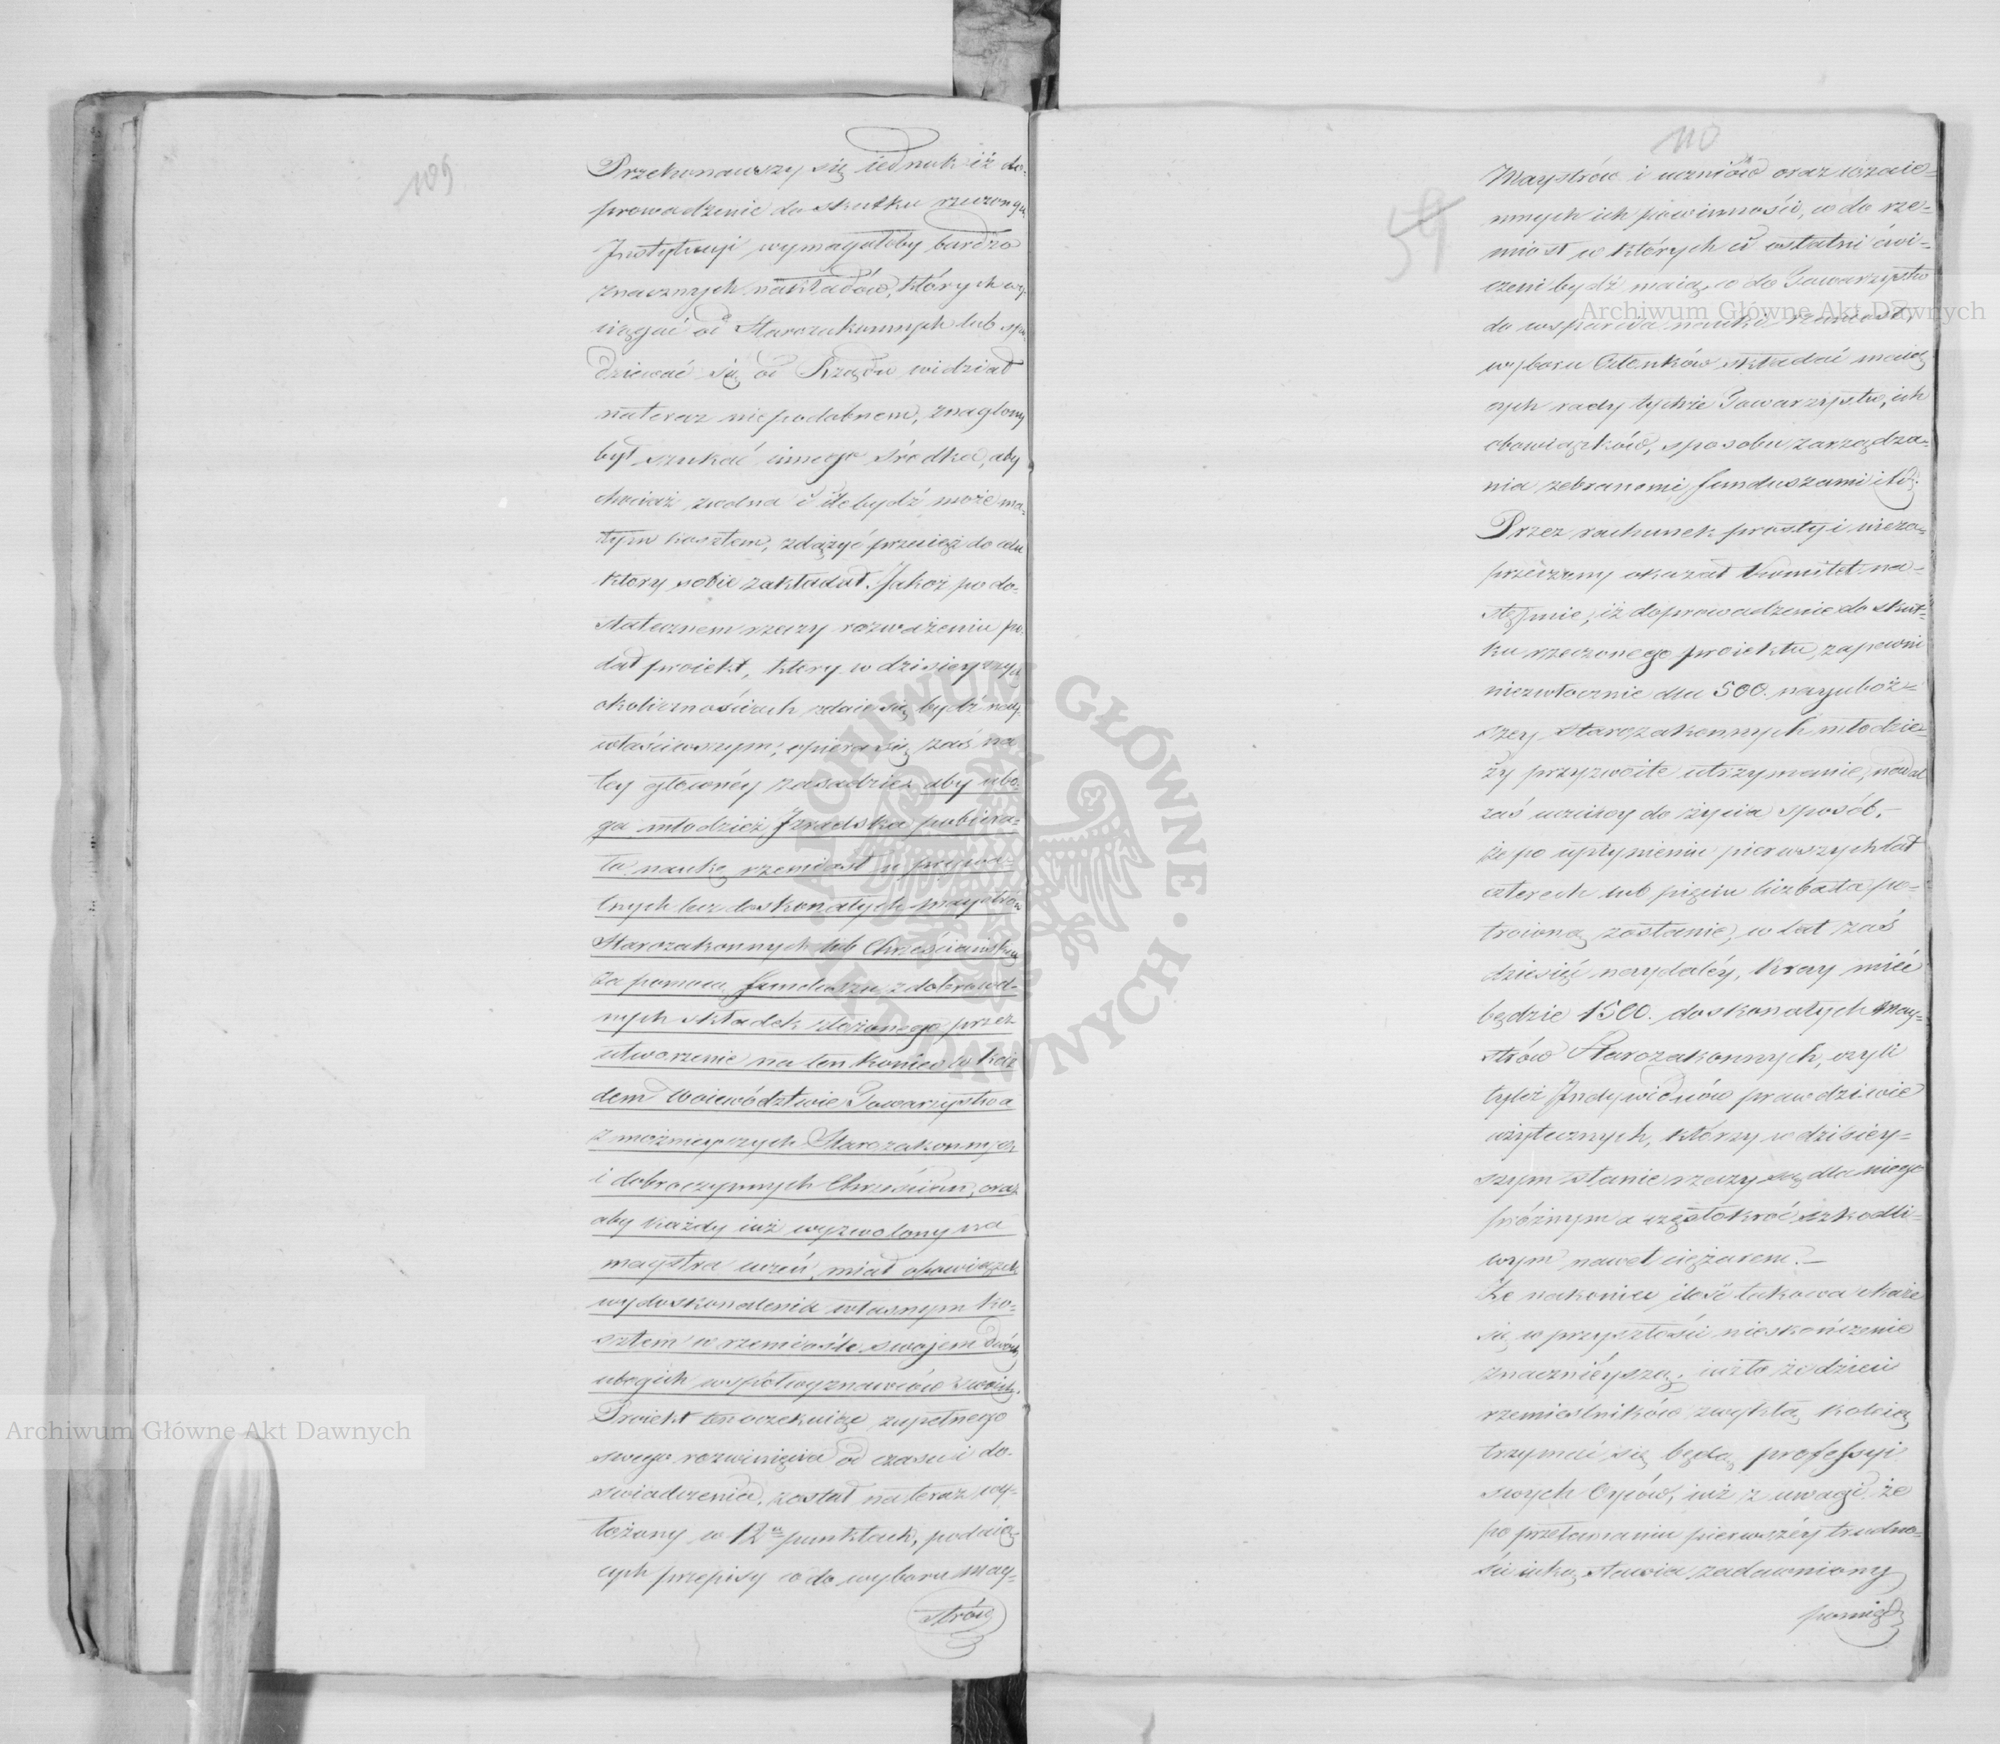 109
Przekonawszy się iednak iż do-
prowadzenie do skutku rzeczoney
Instytucyi wymagałoby bardzo
znacznych nakładów, których wy-
ciągać od Starozakonnych lub spo-
dziewać się od Rządu widział
nateraz niepodobnem, znaglony
był szukać innego środka, aby
chociaż zwolna i ile bydź może ma-
łym kosztem, zdążyć przecięż do celu
który sobie zakładał. Jakoż po do-
statecznem rzeczy rozważeniu po-
dał proiekt, który w dzisieyszych
okolicznościach zdaie się bydź nay-
właściwszym; opiera się zaś na
tey głównéy zasadzie: aby ubo-
ga młodzież Izraelska pobiera-
ła naukę rzemiosł u prywa-
tnych lecz doskonałych maystrów
Starozakonnych lub Chrześciańskich
za pomocą funduszu z dobrowol-
nych składek złożonego przez
utworzenie na ten koniec w każ-
dem Województwie Towarzystwa
z możnieyszych Starozakonnych
i dobroczynnych Chrześcian, oraz
aby każdy już wyzwolony na
maystra uczeń, miał obowiązek
wydoskonalenia własnym ko-
sztem w rzemiośle swojem dwóch
ubogich współwyznawców swoich.
Proiekt ten oczekuiąc zupełnego
swego rozwinięcia od czasu i do-
świadczenia, został na teraz wy-
łożony w 12u punktach, podaią-
cych przepisy co do wyboru May-
strów
110
59
Maystrów i uczniów oraz wzaie-
mnych ich powinności, co do rze-
miosł w których ci ostatni ćwi-
czeni bydź maią, co do Towarzystw
do wsparcia nauki rzemiosł,
wyboru Członków składać maią-
cych rady tychże Towarzystw, ich
obowiązków, sposobu zarządza-
nia zebranemi funduszami itd.
Przez rachunek prosty i nieza-
przeczony okazał Komitet na-
stępnie, iż doprowadzenie do skut-
ku rzeczonego proiektu, zapewni
niezwłocznie dla 500. nayuboż-
szey starozakonnych młodzie-
ży przyzwoite utrzymanie, nadal
zaś uczciwy do życia sposób.-
że po upłynieniu pierwszych lat
czterech lub pięciu liczba ta po-
troioną zostanie, w lat zaś
dziesięć naydaléy, Kray mieć
będzie 1500. doskonałych May-
strów Starozakonnych, czyli
tyleż Indywiduów prawdziwie
użytecznych, którzy w dzisiey-
szym stanie rzeczy są dla niego
próżnym a częstokroć szkodli-
wym nawet ciężarem.-
Że nakoniec ilość takowa okaże
się w przyszłości nieskończenie
znacznieyszą, już to że dzieci
rzemieślników zwykłą koleią
trzymać się będą professyi
swych Oyców, już z uwagi że
po przełamaniu pierwszéy trudno-
ści iaką stawia zadawniony
pomiędzy
Archiwum Główne Akt Dawnych
Archiwum Główne Akt Dawnych
ARCHIWUM GŁÓWNE AKT DAWNYCH